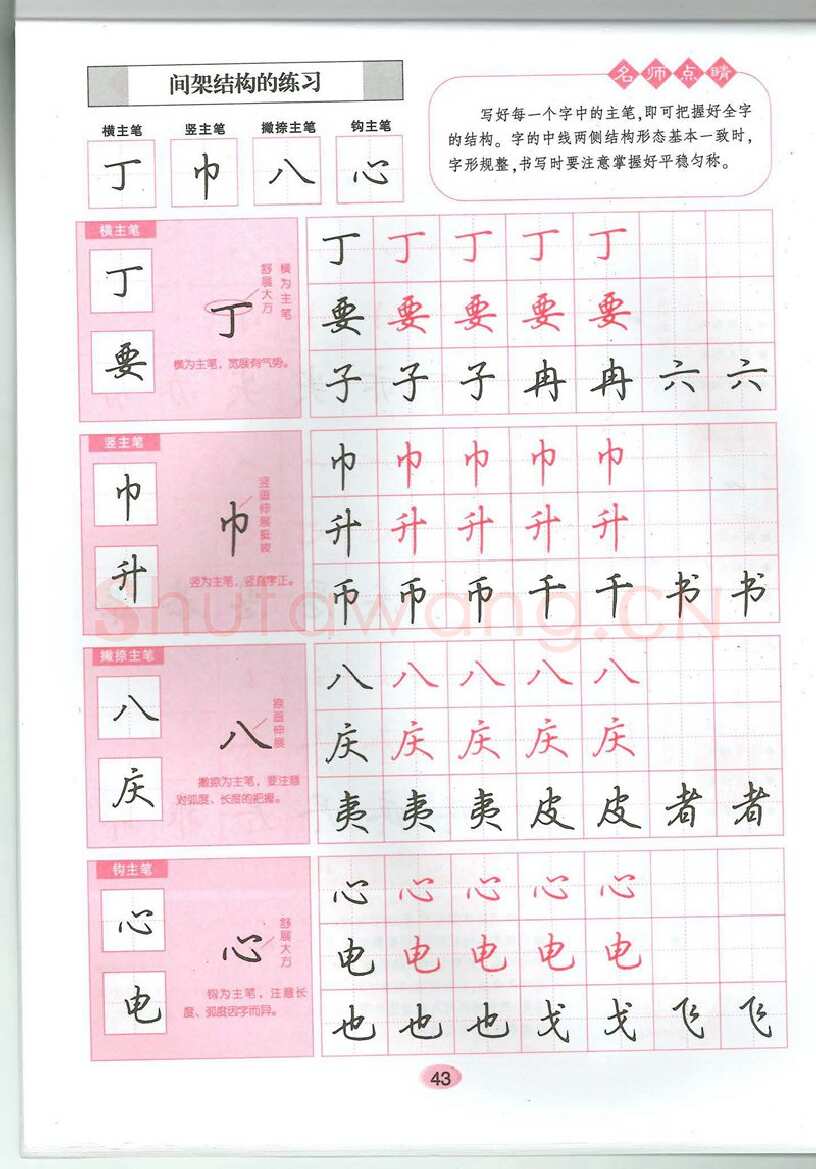 间架结构的练习
名师点睛
写好每一个字中的主笔,即可把握好全字
的结构。字的中线两侧结构形态基本一致时,
字形规整,书写时要注意掌握好平稳匀称。
横主笔 竖主笔 撇捺主笔 钩主笔
丁 巾 八 心
横主笔
丁
要
横为主笔
舒展大方
丁
横为主笔，宽展有气势。
丁 丁 丁 丁 丁
要 要 要 要 要
子 子 子 冉 冉 六 六
竖主笔
巾
升
竖画伸展挺拔
巾
竖为主笔，竖直字正。
巾 巾 巾 巾 巾
升 升 升 升 升
币 币 币 千 千 书 书
Shufawang.CN
撇捺主笔
八
庆
捺画伸展
八
撇捺为主笔，要注意
对弧度、长度的把握。
八 八 八 八 八
庆 庆 庆 庆 庆
夷 夷 夷 皮 皮 者 者
钩主笔
心
电
舒展大方
心
钩为主笔，注意长
度、弧度因字而异。
心 心 心 心 心
电 电 电 电 电
也 也 也 戈 戈 飞 飞
43